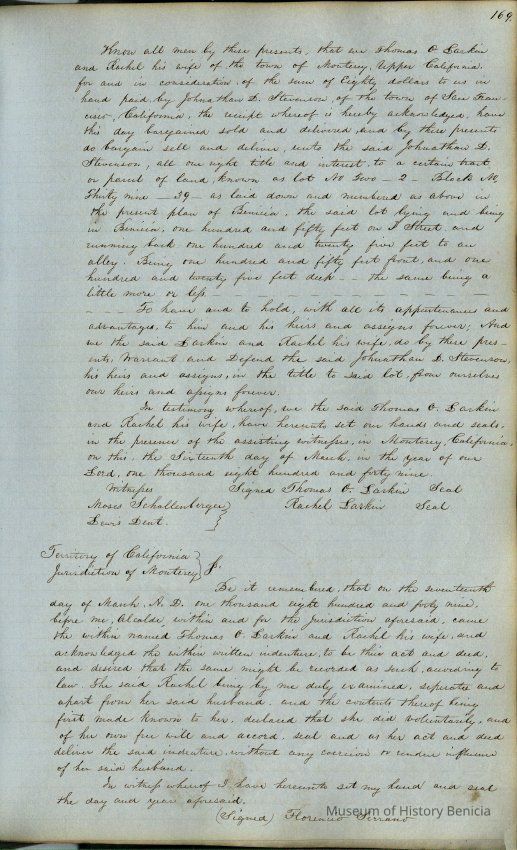 169.
Know all men by these presents, that we Thomas O Larkin
and Rachel his wife of the town of Monterey, Upper California.
for and in consideration, of the sum of Eighty dollars to us in
hand paid, by Johnathan D. Stevenson, of the town of San Fran-
cisco, California, the receipt whereof is hereby acknowledged, have
this day bargained sold and delivered, and by these presents
do bargain sell and deliver, unto the said Johnathan D.
Stevenson, all our right title and interest, to a certain tract
or parcel of land, known as lot No Two - 2 - Block No
Thirty nine - 39 - as laid down and numbered as above in
the present plan of Benicia, the said lot lying and being
in Benicia, one hundred and fifty feet on I Street, and
running back one hundred and twenty five feet to an
alley. Being one hundred and fifty feet front, and one
hundred and twenty five feet deep - - the same being a
little more or less. - - - - - - - - - -
- - - - To have and to hold, with all its appurtenances and
advantages, to him and his heirs and assigns forever; And
we the said Larkin and Rachel his wife, do by these pres-
ents, Warrant and Defend the said Johnathan D. Stevenson,
his heirs and assigns, in the title to said lot, from ourselves
our heirs and assigns forever.
In testimony whereof, we the said Thomas O. Larkin
and Rachel his wife, have hereunto set our hands and seals.
in the presence of the assisting witnesses, in Monterey, California,
on this, the Sixteenth day of March, in the year of our
Lord, one thousand eight hundred and forty nine.
Witness Signed Thomas O. Larkin Seal
Moses Schallenberger } Rachel Larkin Seal
Lewis Dent. }
Territory of California }
Jurisdiction of Monterey }
Be it remembered, that on the seventeenth
day of March, A. D. one thousand eight hundred and forty nine,
before me, Alcalde, within and for the jurisdiction aforesaid, came
the within named Thomas O Larkin and Rachel his wife, and
acknowledged the within written indenture, to be their act and deed,
and desired that the same might be recorded as such, according to
law. The said Rachel being by me duly examined, seperate and
apart from her said husband. and the contents thereof being
first made known to her, declared that she did voluntarily, and
of her own free will and accord, seal and as her act and deed
deliver the said indenture, without any coercion or under influence
of her said husband.
In witness whereof I have hereunto set my hand and seal
the day and year aforesaid.
(Signed) Florencio Serrano
Museum of History Benicia